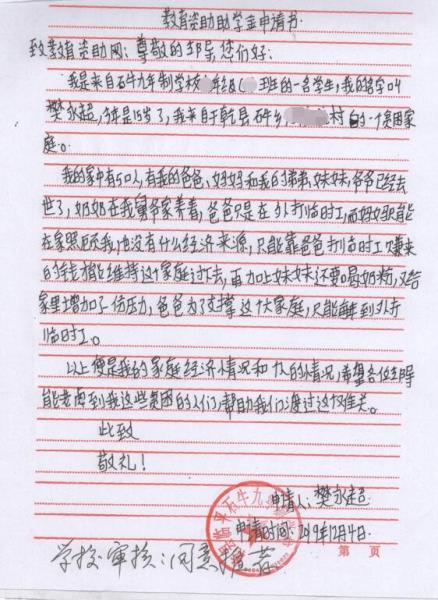 教育资助助学金申请书
致教育资助网:尊敬的领导您们好:
我是来自石牛九年制学校 年级 班的一名学生,我的名字叫
樊永超,今年是15岁了,我来自于乾县石牛乡 村的一个贫困家
庭。
我的家中有5口人,有我的爸爸、妈妈和我的弟弟,妹妹,爷爷已经去
世了,奶奶在我 爷家养着,爸爸只是在外打临时工,而妈妈只能
在家照顾我,也没有什么经济来源,只能靠爸爸打临时工赚来
的钱才能维持这个家庭过下去,再加上妹妹还要喝奶粉,又给
家里增加了一份压力,爸爸为了支撑这个大家庭,只能 到外打
临时工。
以上便是我的家庭经济情况和 的情况,希望各位领导
能考虑到我这些贫困的人们,帮助我们渡过这个难关。
此致
敬礼!
申请人:樊永超
申请时间:2019年12月4日.
第 页
学校审核:同意推荐